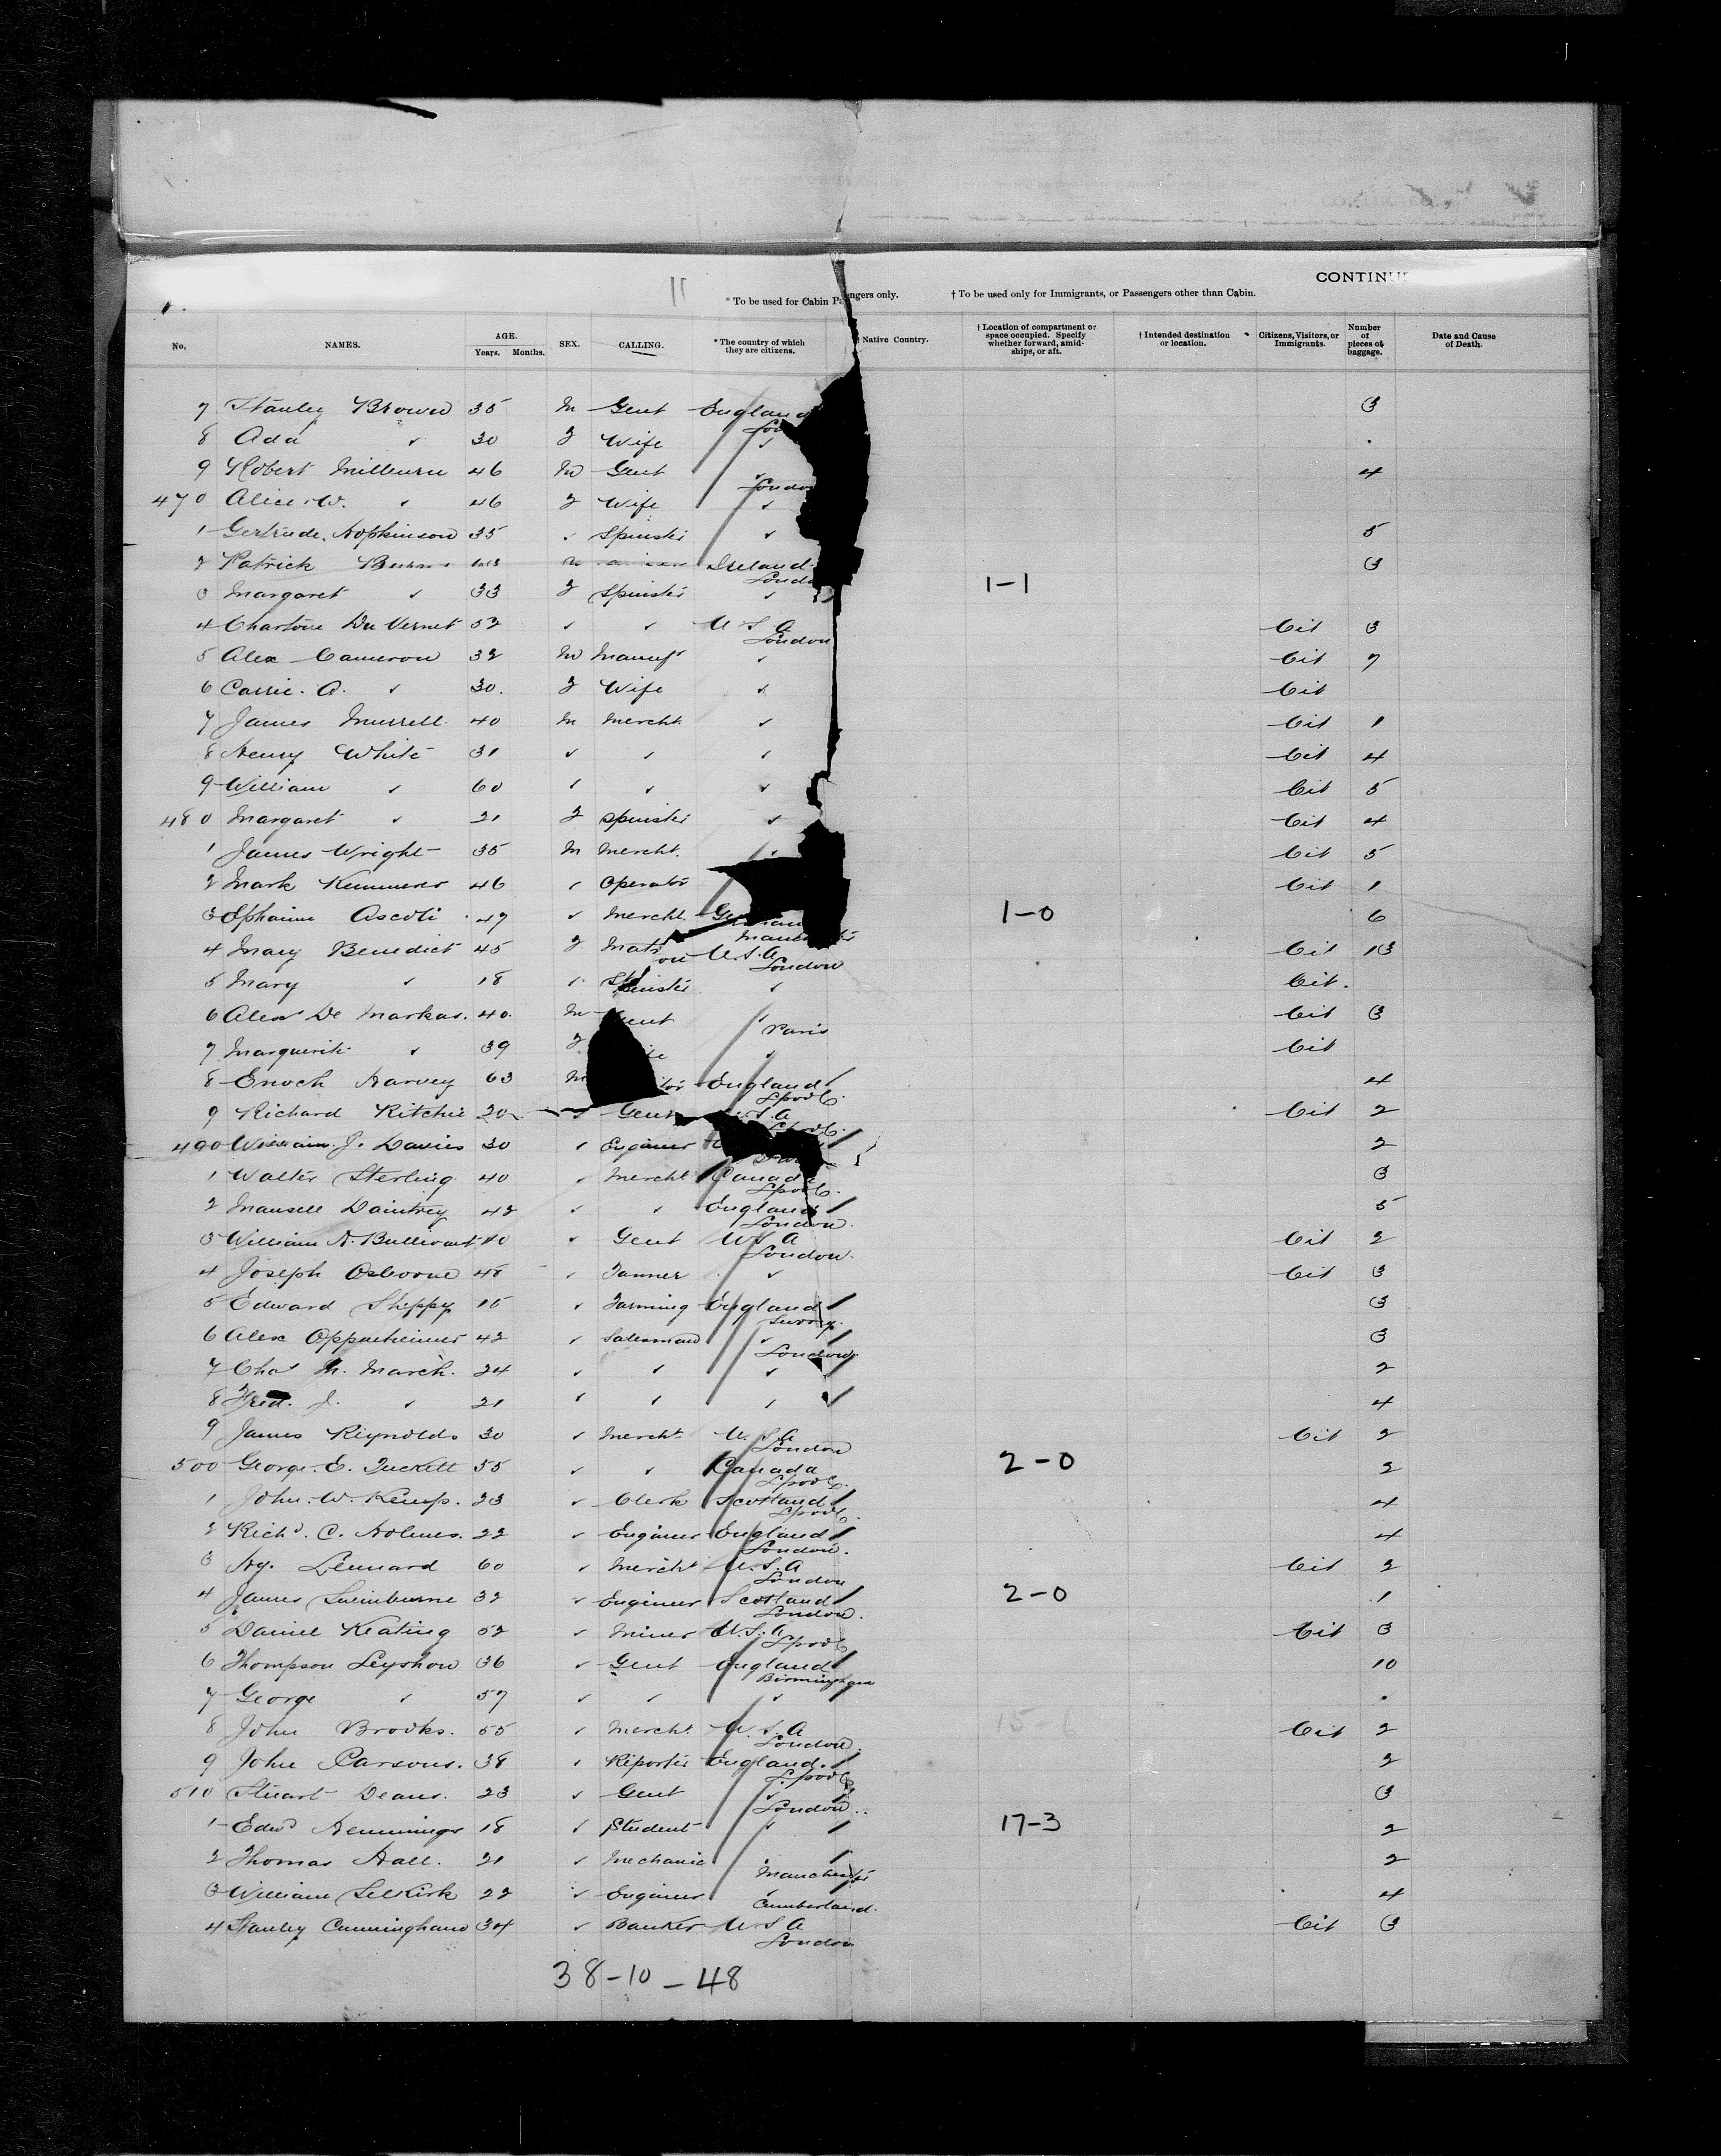 CONTINU
11
* To be used for Cabin P ngers only. † To be used only for Immigrants, or Passengers other than Cabin.
No. NAMES. AGE. Years. Months. SEX. CALLING. * The country of which they are citizens. Native Country. † Location of compartment or space occupied. Specify whether forward, amidships, or aft. † Intended destination or location. Citizens, Visitors, or Immigrants. Number of pieces of baggage. Date and Cause of Death.
7 Stanley Brown 35 M Gent England 3
8 Ada ✓ 30 F Wife ✓
9 Robert Milburn 46 M Gent ✓ 4
London
470 Alice W. ✓ 46 F Wife ✓
1 Gertrude Hopkinson 35 ✓ Spinster ✓ 5
2 Patrick M Ireland 3
3 Margaret ✓ 33 F Spinster ✓ 1-1
4 Du Vernet 52 ✓ ✓ U S A Cit 3
London
5 Alex Cameron 32 M Manufr ✓ Cit 7
6 Carrie A. ✓ 30 F Wife ✓ Cit
7 James Murrell 40 M Mercht ✓ Cit 1
8 Henry White 31 ✓ ✓ ✓ Cit 4
9 William ✓ 60 ✓ ✓ ✓ Cit 5
480 Margaret ✓ 21 F Spinster ✓ Cit 4
1 James Wright 35 M Mercht. ✓ Cit 5
2 Mark Kemmerer 46 ✓ Operator Cit 1
3 Ephaim Ascoli 47 ✓ Mercht. 1-0 6
4 Mary Benedict 45 F Matron U.S.A Cit 13
London
5 Mary ✓ 18 ✓ Spinster ✓ Cit.
6 Alex De Markas. 40. M Gent ✓ Cit 3
Paris
7 Marguerite ✓ 39 F ✓ Cit
8 Enoch Harvey 63 M England 4
Lpool
9 Richard Ritchie 20 ✓ Gent U.S.A Cit 2
490 William J. Davies 30 ✓ Engineer 2
1 Walter Sterling 40 ✓ Mercht Canada 3
Lpool.
2 Mansell Daintrey 42 ✓ ✓ England 5
London.
3 William H. Bullivant 40 ✓ Gent U S A Cit 2
London.
4 Joseph Osborne 48 ✓ Tanner ✓ Cit 3
5 Edward Sheppy ✓ Farming England 3
Surrey.
6 Alex Oppenheimer 42 ✓ Salesman ✓ 3
London
7 Chas M. March. 24 ✓ ✓ ✓ 2
8 Fred. J. ✓ 21 ✓ ✓ ✓ 4
9 James Reynolds 30 ✓ Mercht U.S.A Cit 2
London
500 George E. Tuckett 55 ✓ ✓ Canada 2-0 2
Lpool
1 John W. Kemp. 23 ✓ Clerk Scotland 4
Lpool
2 Richd. C. Holmes. 22 ✓ Engineer England 4
London.
3 Hy. Lennard 60 ✓ Mercht U.S.A Cit 2
London
4 James Swinburne 32 ✓ Engineer Scotland 2-0 1
London.
5 Daniel Keating 52 ✓ Miner U.S.A Cit 3
Lpool
6 Thompson Leyshon 36 ✓ Gent England 10
Birmingham
7 George ✓ 57 ✓ ✓ ✓
8 John Brooks. 55 ✓ Mercht. U.S.A 15-6 Cit 2
London.
9 John Parsons. 38 ✓ Reporter England. 2
Lpool
510 Stuart Deans. 23 ✓ Gent ✓ 3
London
1 Edwd Hemmings 18 ✓ Student ✓ 17-3 2
2 Thomas Hall. 21 ✓ Mechanic 2
Manchester
3 William Selkirk 22 ✓ Engineer ✓ 4
Cumberland.
4 Stanley Cunningham 34 ✓ Banker U S A Cit 3
London
38-10-48